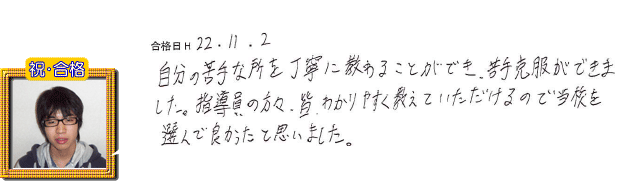 祝・合格
合格日 H 22.11.2
自分の苦手な所を丁寧に教わることができ、苦手克服ができま
した。指導員の方々、皆、わかりやすく教えていただけるので当校を
選んで良かったと思いました。